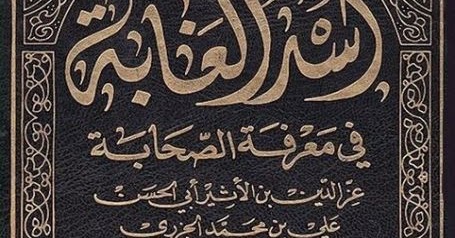 أسد الغابة
في معرفة الصحابة
عز الدين بن الأثير أبي الحسن
علي بن محمد الجزري